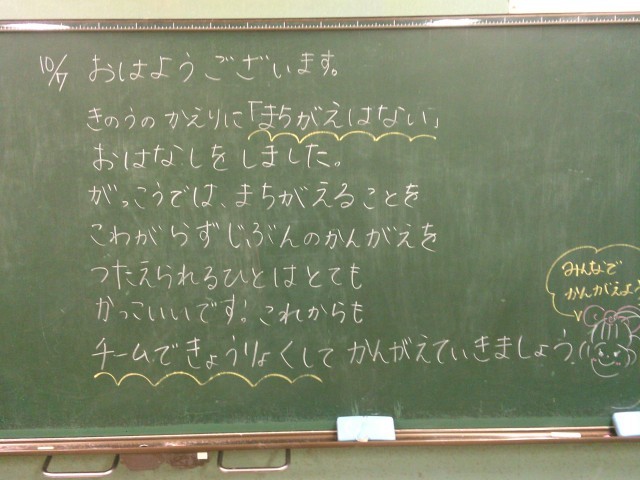 10/7 おはようございます。
きのうの かえりに「まちがえはない」
おはなしをしました。
がっこうでは、まちがえることを
こわがらずじぶんのかんがえを
つたえられるひとはとても
かっこいいです!これからも
チームできょうりょくして かんがえていきましょう。
みんなで
かんがえよう